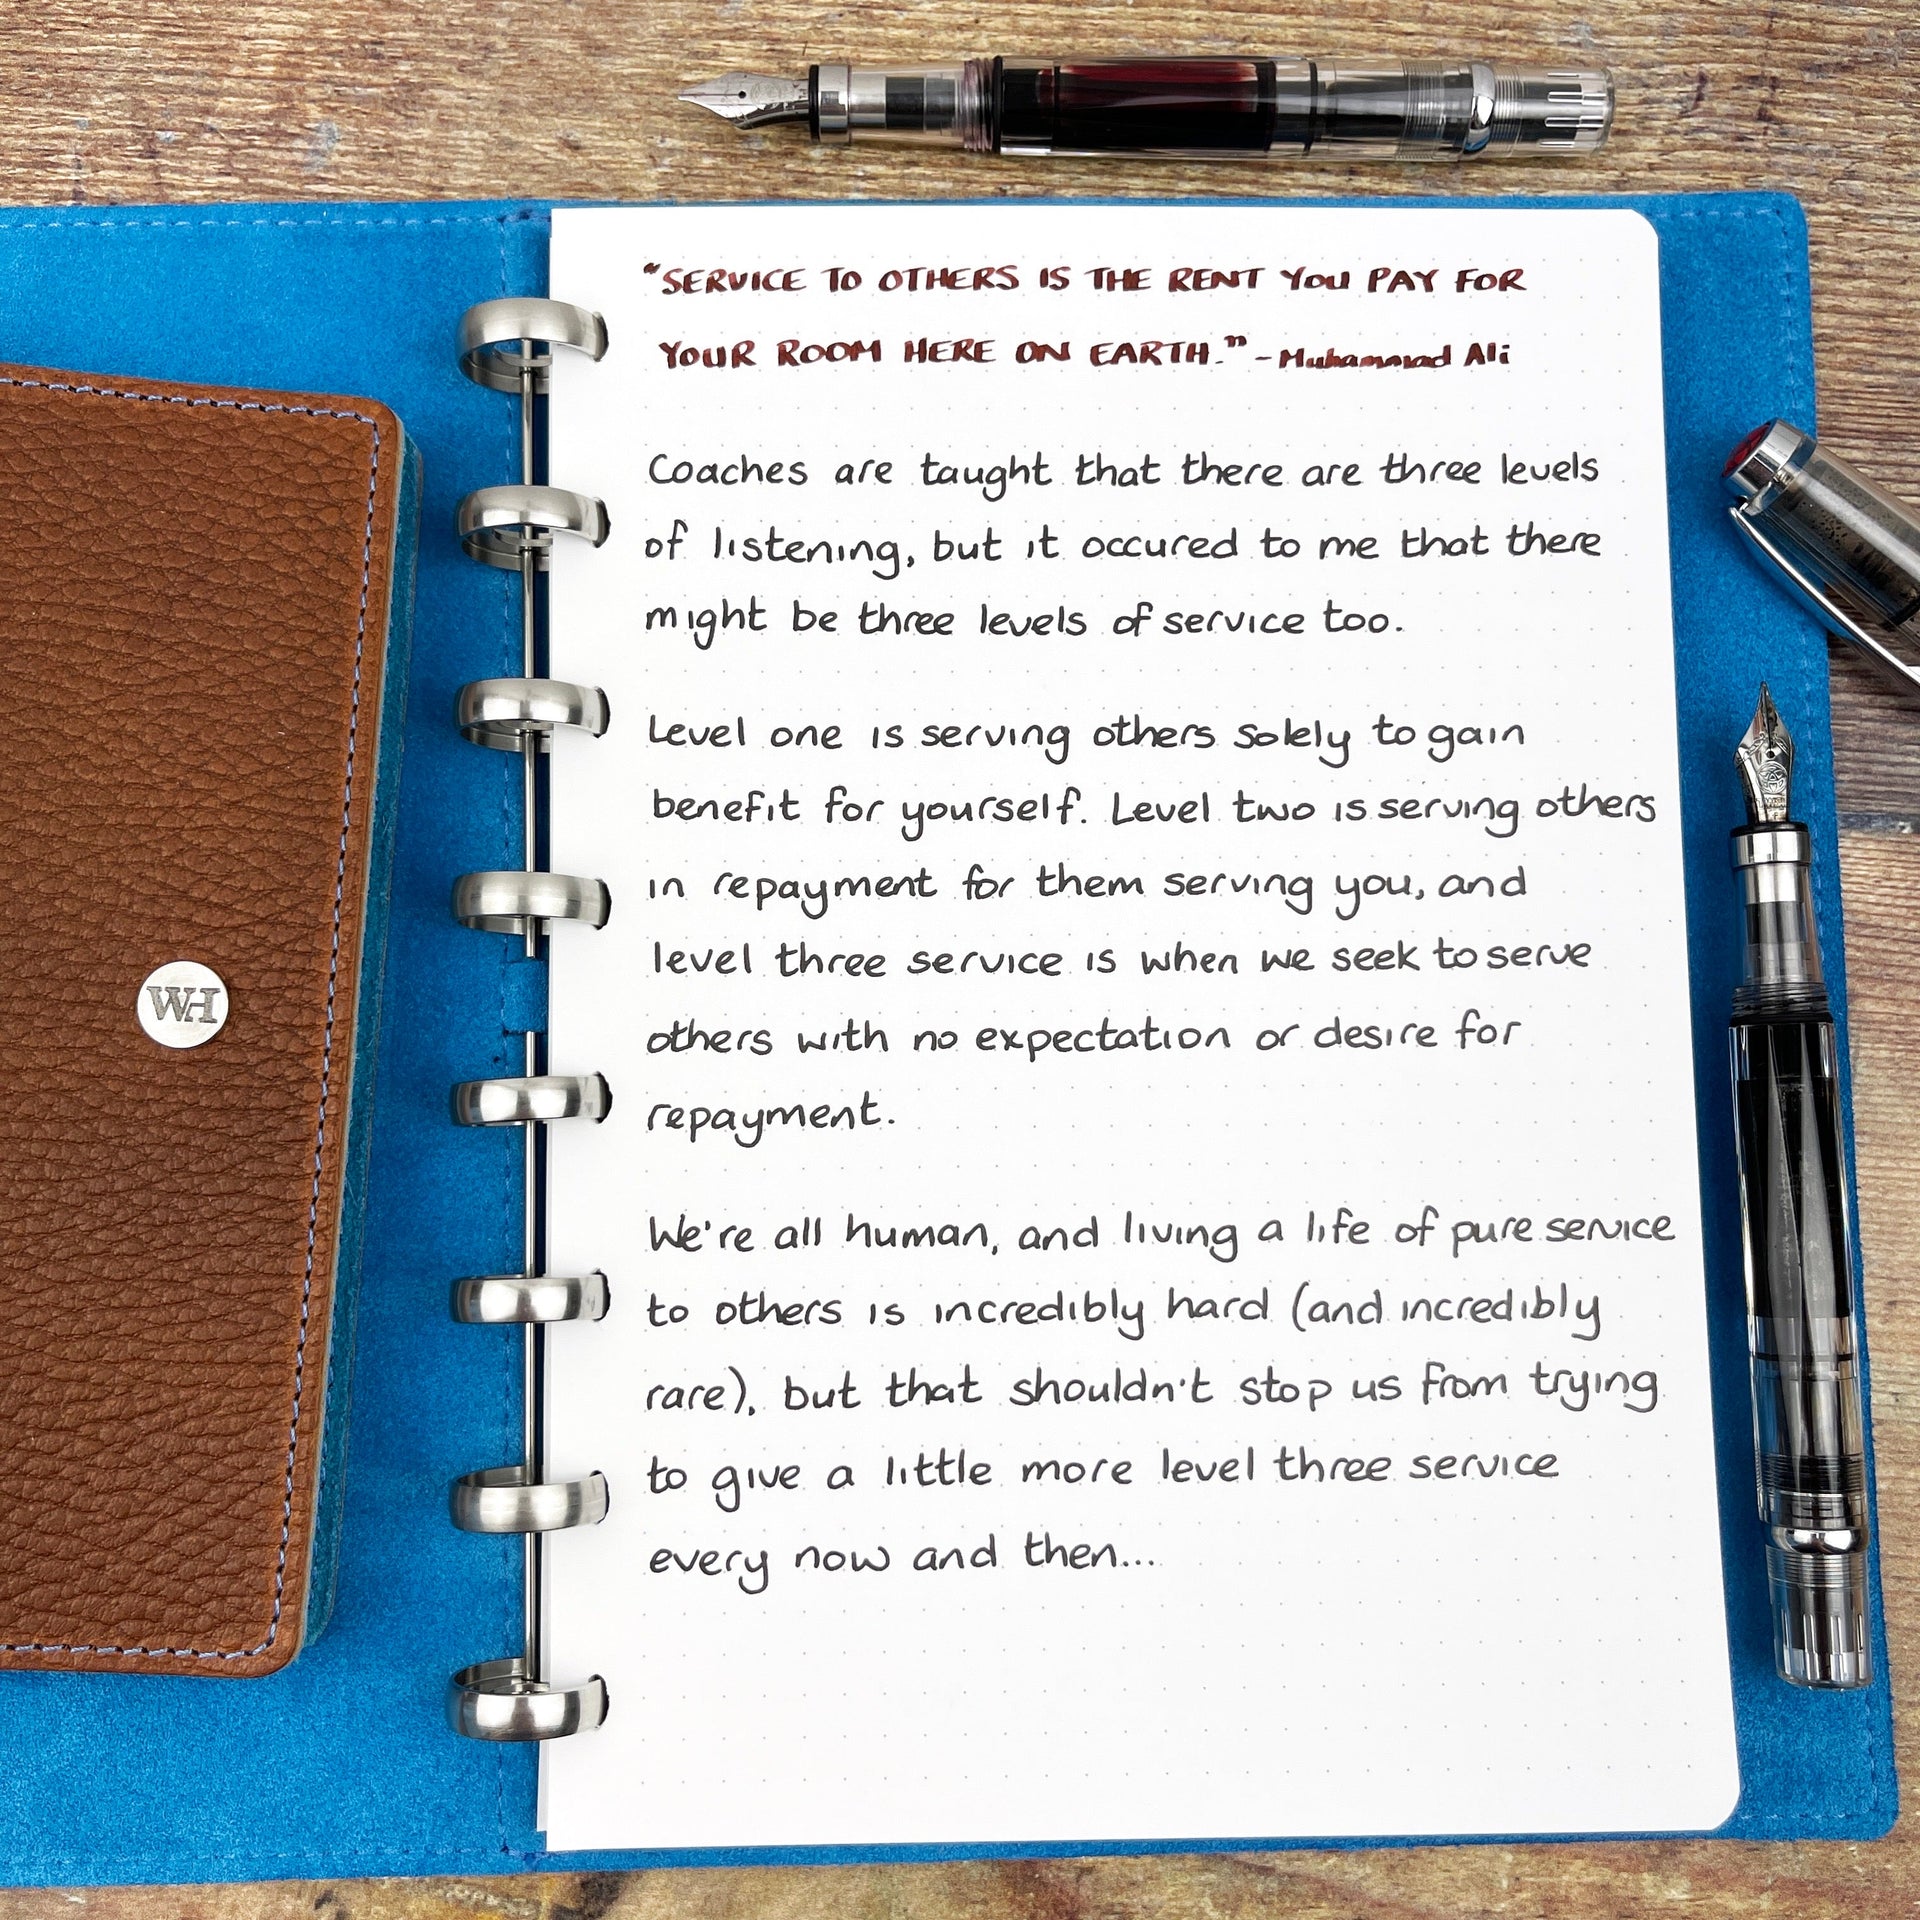 WH
"SERVICE TO OTHERS IS THE RENT YOU PAY FOR
YOUR ROOM HERE ON EARTH." - Muhammad Ali
Coaches are taught that there are three levels
of listening, but it occured to me that there
might be three levels of service too.
Level one is serving others solely to gain
benefit for yourself. Level two is serving others
in repayment for them serving you, and
level three service is when we seek to serve
others with no expectation or desire for
repayment.
We're all human, and living a life of pure service
to others is incredibly hard (and incredibly
rare), but that shouldn't stop us from trying
to give a little more level three service
every now and then...